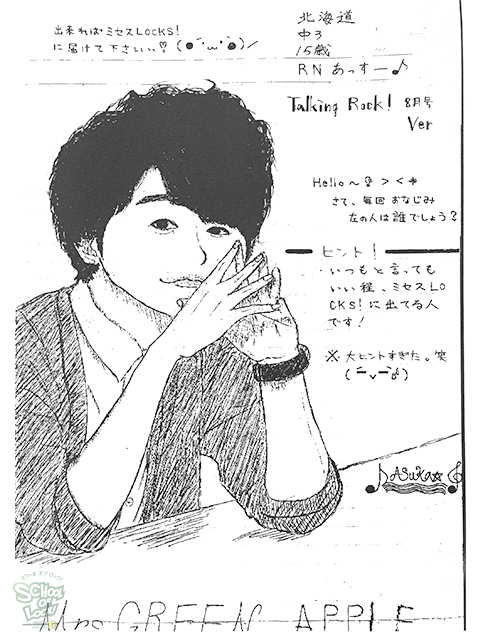 出来ればミセスLOCKS!
に届けて下さいっ♡(●´ω`●)/
北海道
中3
15歳
RN あっすー♪
Talking Rock! 8月号
Ver
Hello~ ><*
さて、毎回おなじみ
左の人は誰でしょう?
ヒント!
・いつもと言っても
いい程、ミセスLO
CKS!に出てる人
です!
※大ヒントすぎた。笑
ASUKA☆
スクールオブロック!
SCHOOL OF LOCK!
Mrs. GREEN APPLE